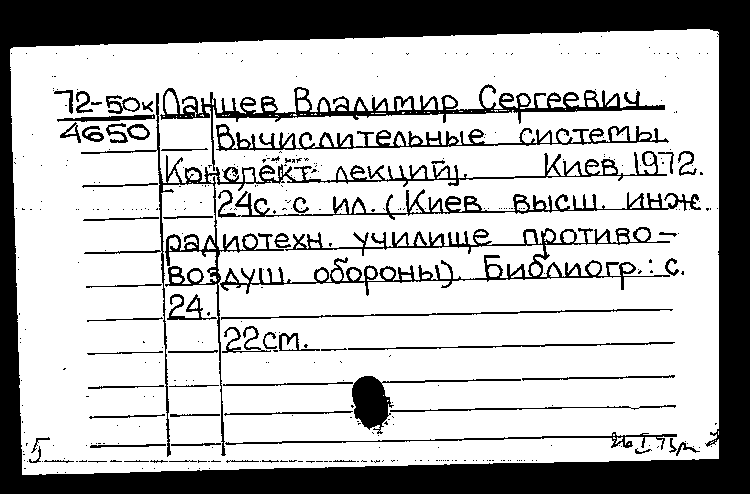 72-50к Ланцев, Владимир Сергеевич
4650 Вычислительные системы.
[Конспект лекций].  Киев, 1972.
24с. с ил. (Киев высш. инж.
радиотехн. училище противо-
воздуш. обороны). Библиогр.: с.
24.
22см.
5